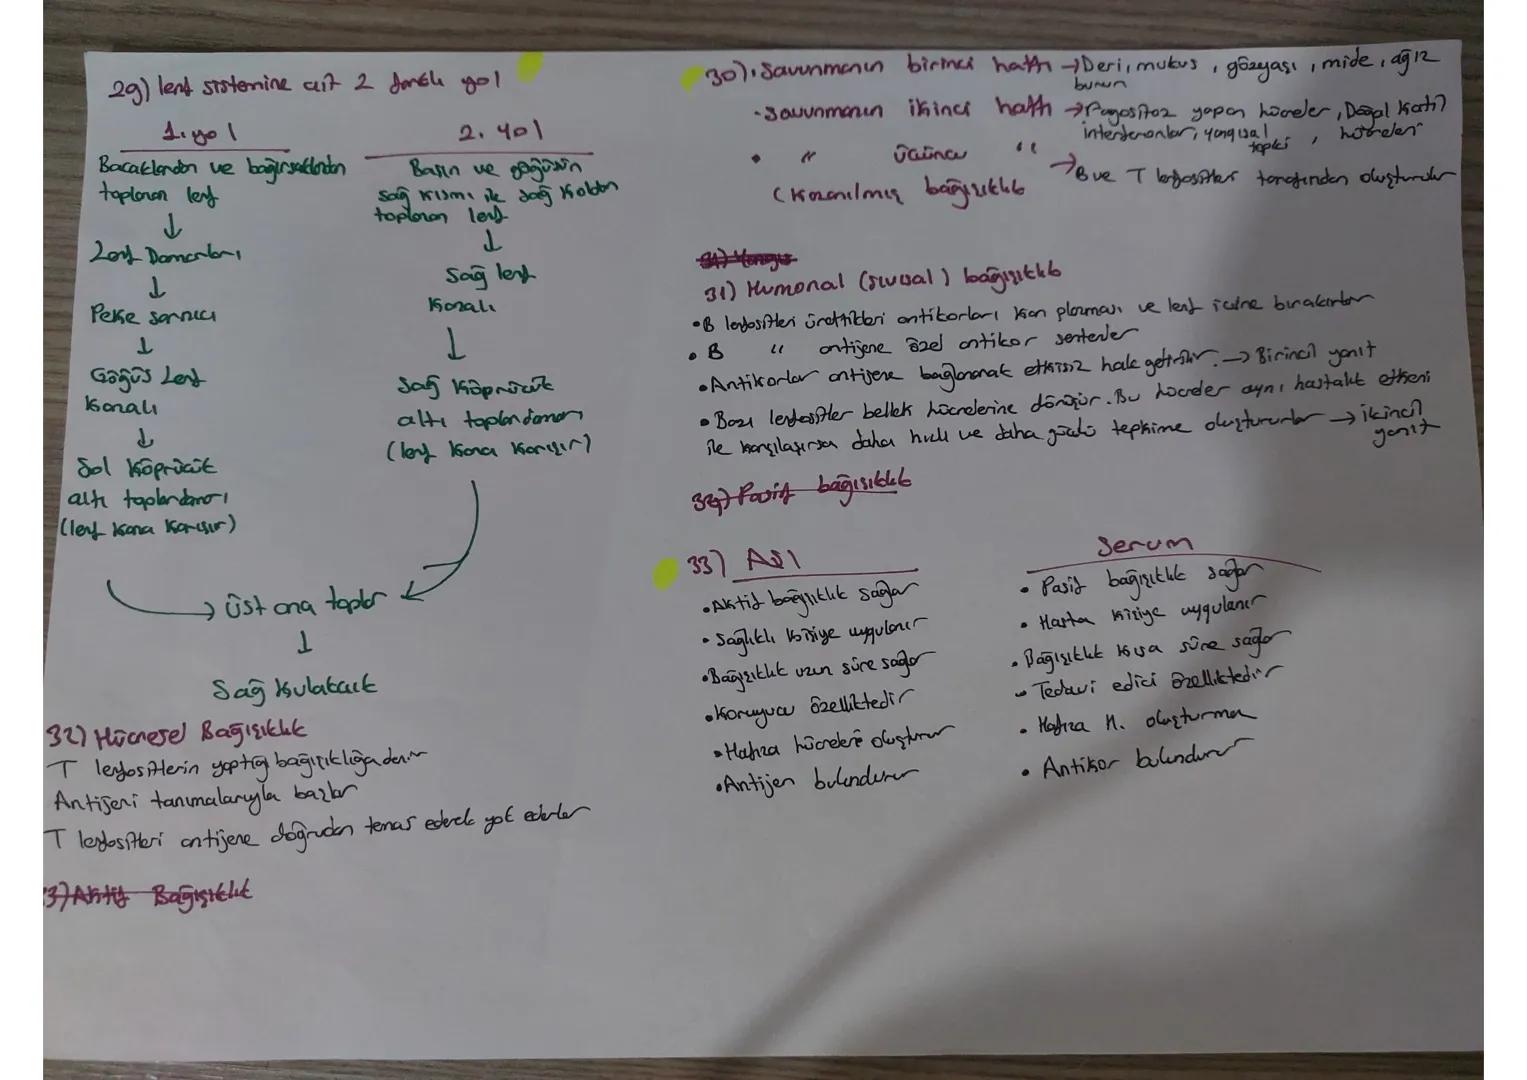 29) lenf sistemine ait 2 farklı yol
1. yol
Bacaklardan ve bağırsaklardan
toplanan lenf
↓
Lenf Damarları
↓
Peke sarnıcı
↓
Göğüs Lenf
Kanalı
↓
Sol Köprücük
altı toplardamarı
(lenf kana karışır)
2. yol
Başın ve göğüsün
sağ kısmı ile sağ koldan
toplanan lenf
↓
Sağ lenf
Kanalı
↓
Sağ Köprücük
altı toplardamarı
(lenf kana karışır)
→ üst ana toplar ←
↓
Sağ Kulakcık
32) Hücresel Bağışıklık
T lenfositlerin yaptığı bağışıklığa denir
Antijeni tanımalarıyla başlar
T lenfositleri antijene doğrudan temas ederek yok ederler
3) Aktif Bağışıklık
30) • Savunmanın birinci hattı → Deri, mukus, gözyaşı, mide, ağız
burun
• Savunmanın ikinci hattı → Fagositoz yapan hücreler, Doğal katil
interferonlar, yangısal tepki, hücreleri
• " üçüncü "
(Kazanılmış bağışıklık → B ve T lenfositler tarafından oluşturulur
31) Yangı
31) Humonal (sıvısal) bağışıklık
• B lenfositleri ürettikleri antikorları kan plazması ve lenf içine bırakırlar
• B " antijene özel antikor sentezler
• Antikorlar antijene bağlanarak etkisiz hale getirilir. → Birincil yanıt
• Bazı lenfositler bellek hücrelerine dönüşür. Bu hücreler aynı hastalık etkeni
ile karşılaşırsa daha hızlı ve daha güçlü tepkime oluştururlar → ikincil
yanıt
32) Pasif bağışıklık
33) Aşı
• Aktif bağışıklık sağlar
• Sağlıklı kişiye uygulanır
• Bağışıklık uzun süre sağlar
• Koruyucu özelliktedir
• Hafıza hücreleri oluşturur
• Antijen bulundurur
Serum
• Pasif bağışıklık sağlar
• Hasta kişiye uygulanır
• Bağışıklık kısa süre sağlar
• Tedavi edici özelliktedir
• Hafıza H. oluşturmaz
• Antikor bulundurur